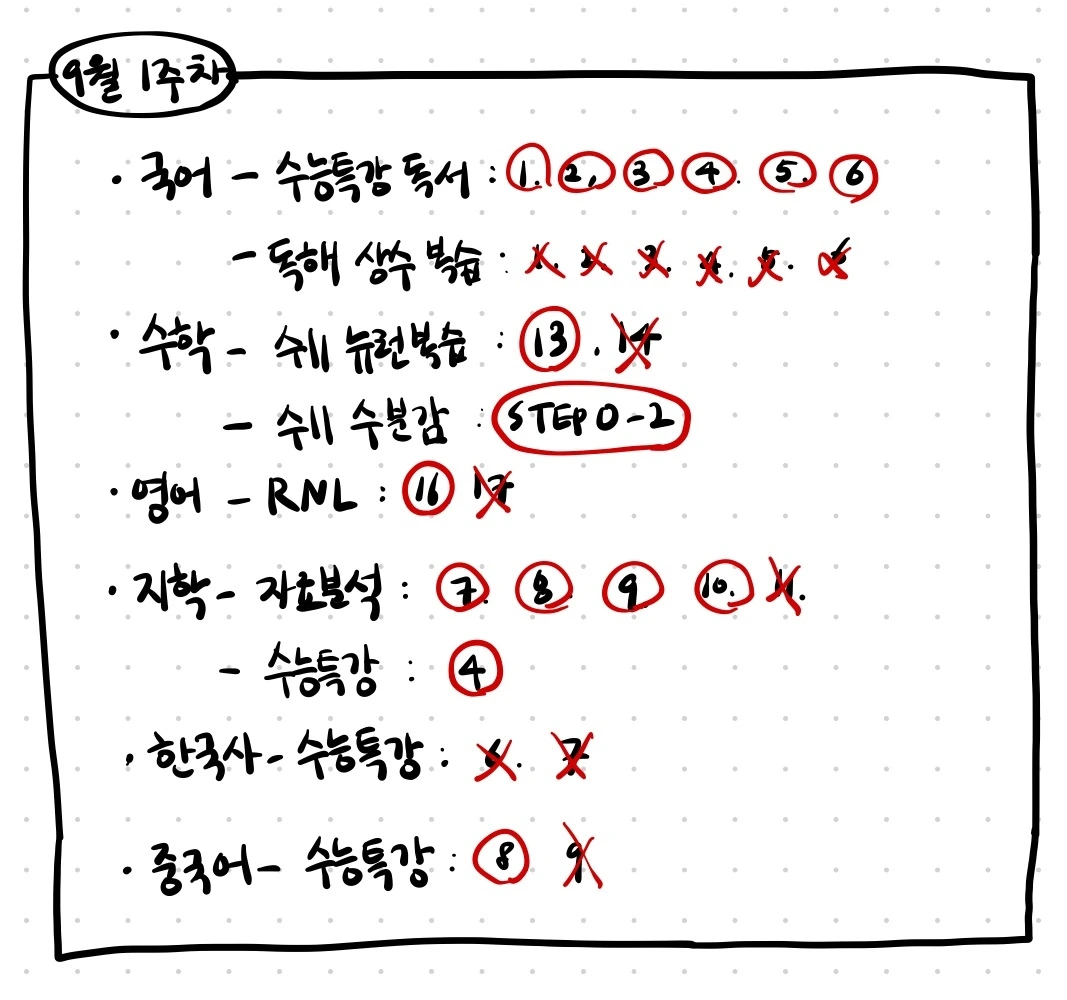 9월 1주차
· 국어 - 수능특강 독서 : 1. 2, 3. 4. 5. 6
- 독해 생수 복습 : 1. 2. 3. 4. 5. 6
· 수학 - 수II 뉴런복습 : 13 . 14
- 수II 수분감 : STEP 0-2
· 영어 - RNL : 16 17
· 지학 - 자료분석 : 7. 8. 9. 10. 11.
- 수능특강 : 4
· 한국사 - 수능특강 : 6. 7
· 중국어 - 수능특강 : 8 9